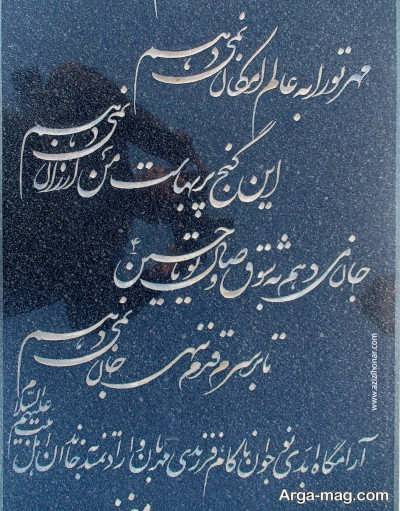 مهر تو را به عالم امکان نمی دهم
این گنج پر بهاست من ارزان نمی دهم
جان می دهم به شوق وصال تو یا حسین ع
تا بر سرم قدم ننهی جان نمی دهم
آرامگاه ابدی نوجوان ناکام فرزندی مهربان و ارادتمند به خاندان اهل بیت علیهم السلام
www.azizihonar.com
Arga-mag.com